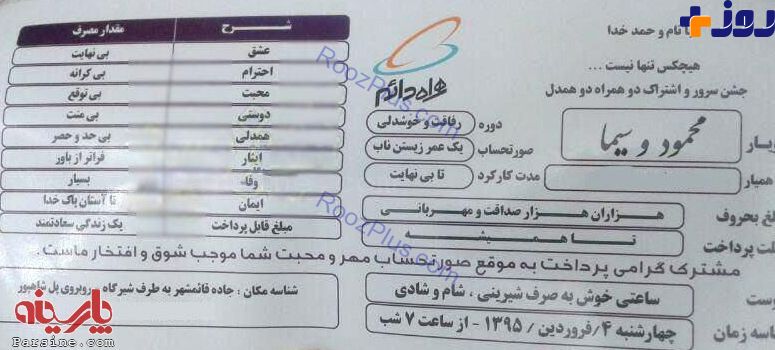 با نام و حمد خدا
هیچکس تنها نیست ...
جشن سرور و اشتراک دو همراه دو همدل
محمود و سیما
همیار
همراه دائم
دوره رفاقت و خوشدلی
صورتحساب یک عمر زیستن ناب
مدت کارکرد تا بی نهایت
هزاران هزار صداقت و مهربانی
پرداخت تا همیشه
شرح مقدار مصرف
عشق بی نهایت
احترام بی کرانه
محبت بی توقع
دوستی بی منت
همدلی بی حد و حصر
ایثار فراتر از باور
وفا بسیار
ایمان تا آستان پاک خدا
مبلغ قابل پرداخت یک زندگی سعادتمند
مشترک گرامی پرداخت به موقع صورتحساب مهر و محبت شما موجب شوق و افتخار ماست.
ساعتی خوش به صرف شیرینی ، شام و شادی
چهارشنبه ۴/فروردین / ۱۳۹۵ - از ساعت ۷ شب
شناسه مکان : جاده قائمشهر به طرف شیرگاه - روبروی پل شاهپور
روز
RoozPlus.com
RoozPlus.com
RoozPlus.com
پارسینه
Parsine.com